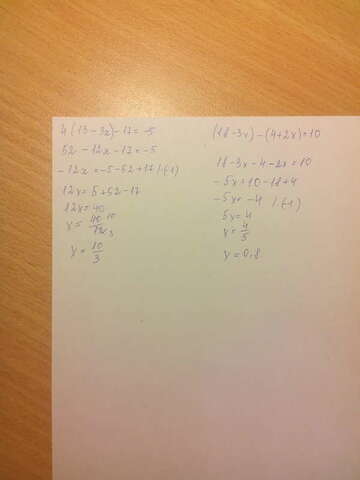 4(13-3x)-17=-5
52-12x-17=-5
-12x=-5-52+17 /·(-1)
12x=5+52-17
12x=40
x=40/12 10/3
x=10/3
(18-3x)-(4+2x)=10
18-3x-4-2x=10
-5x=10-18+4
-5x=-4 /·(-1)
5x=4
x=4/5
x=0,8